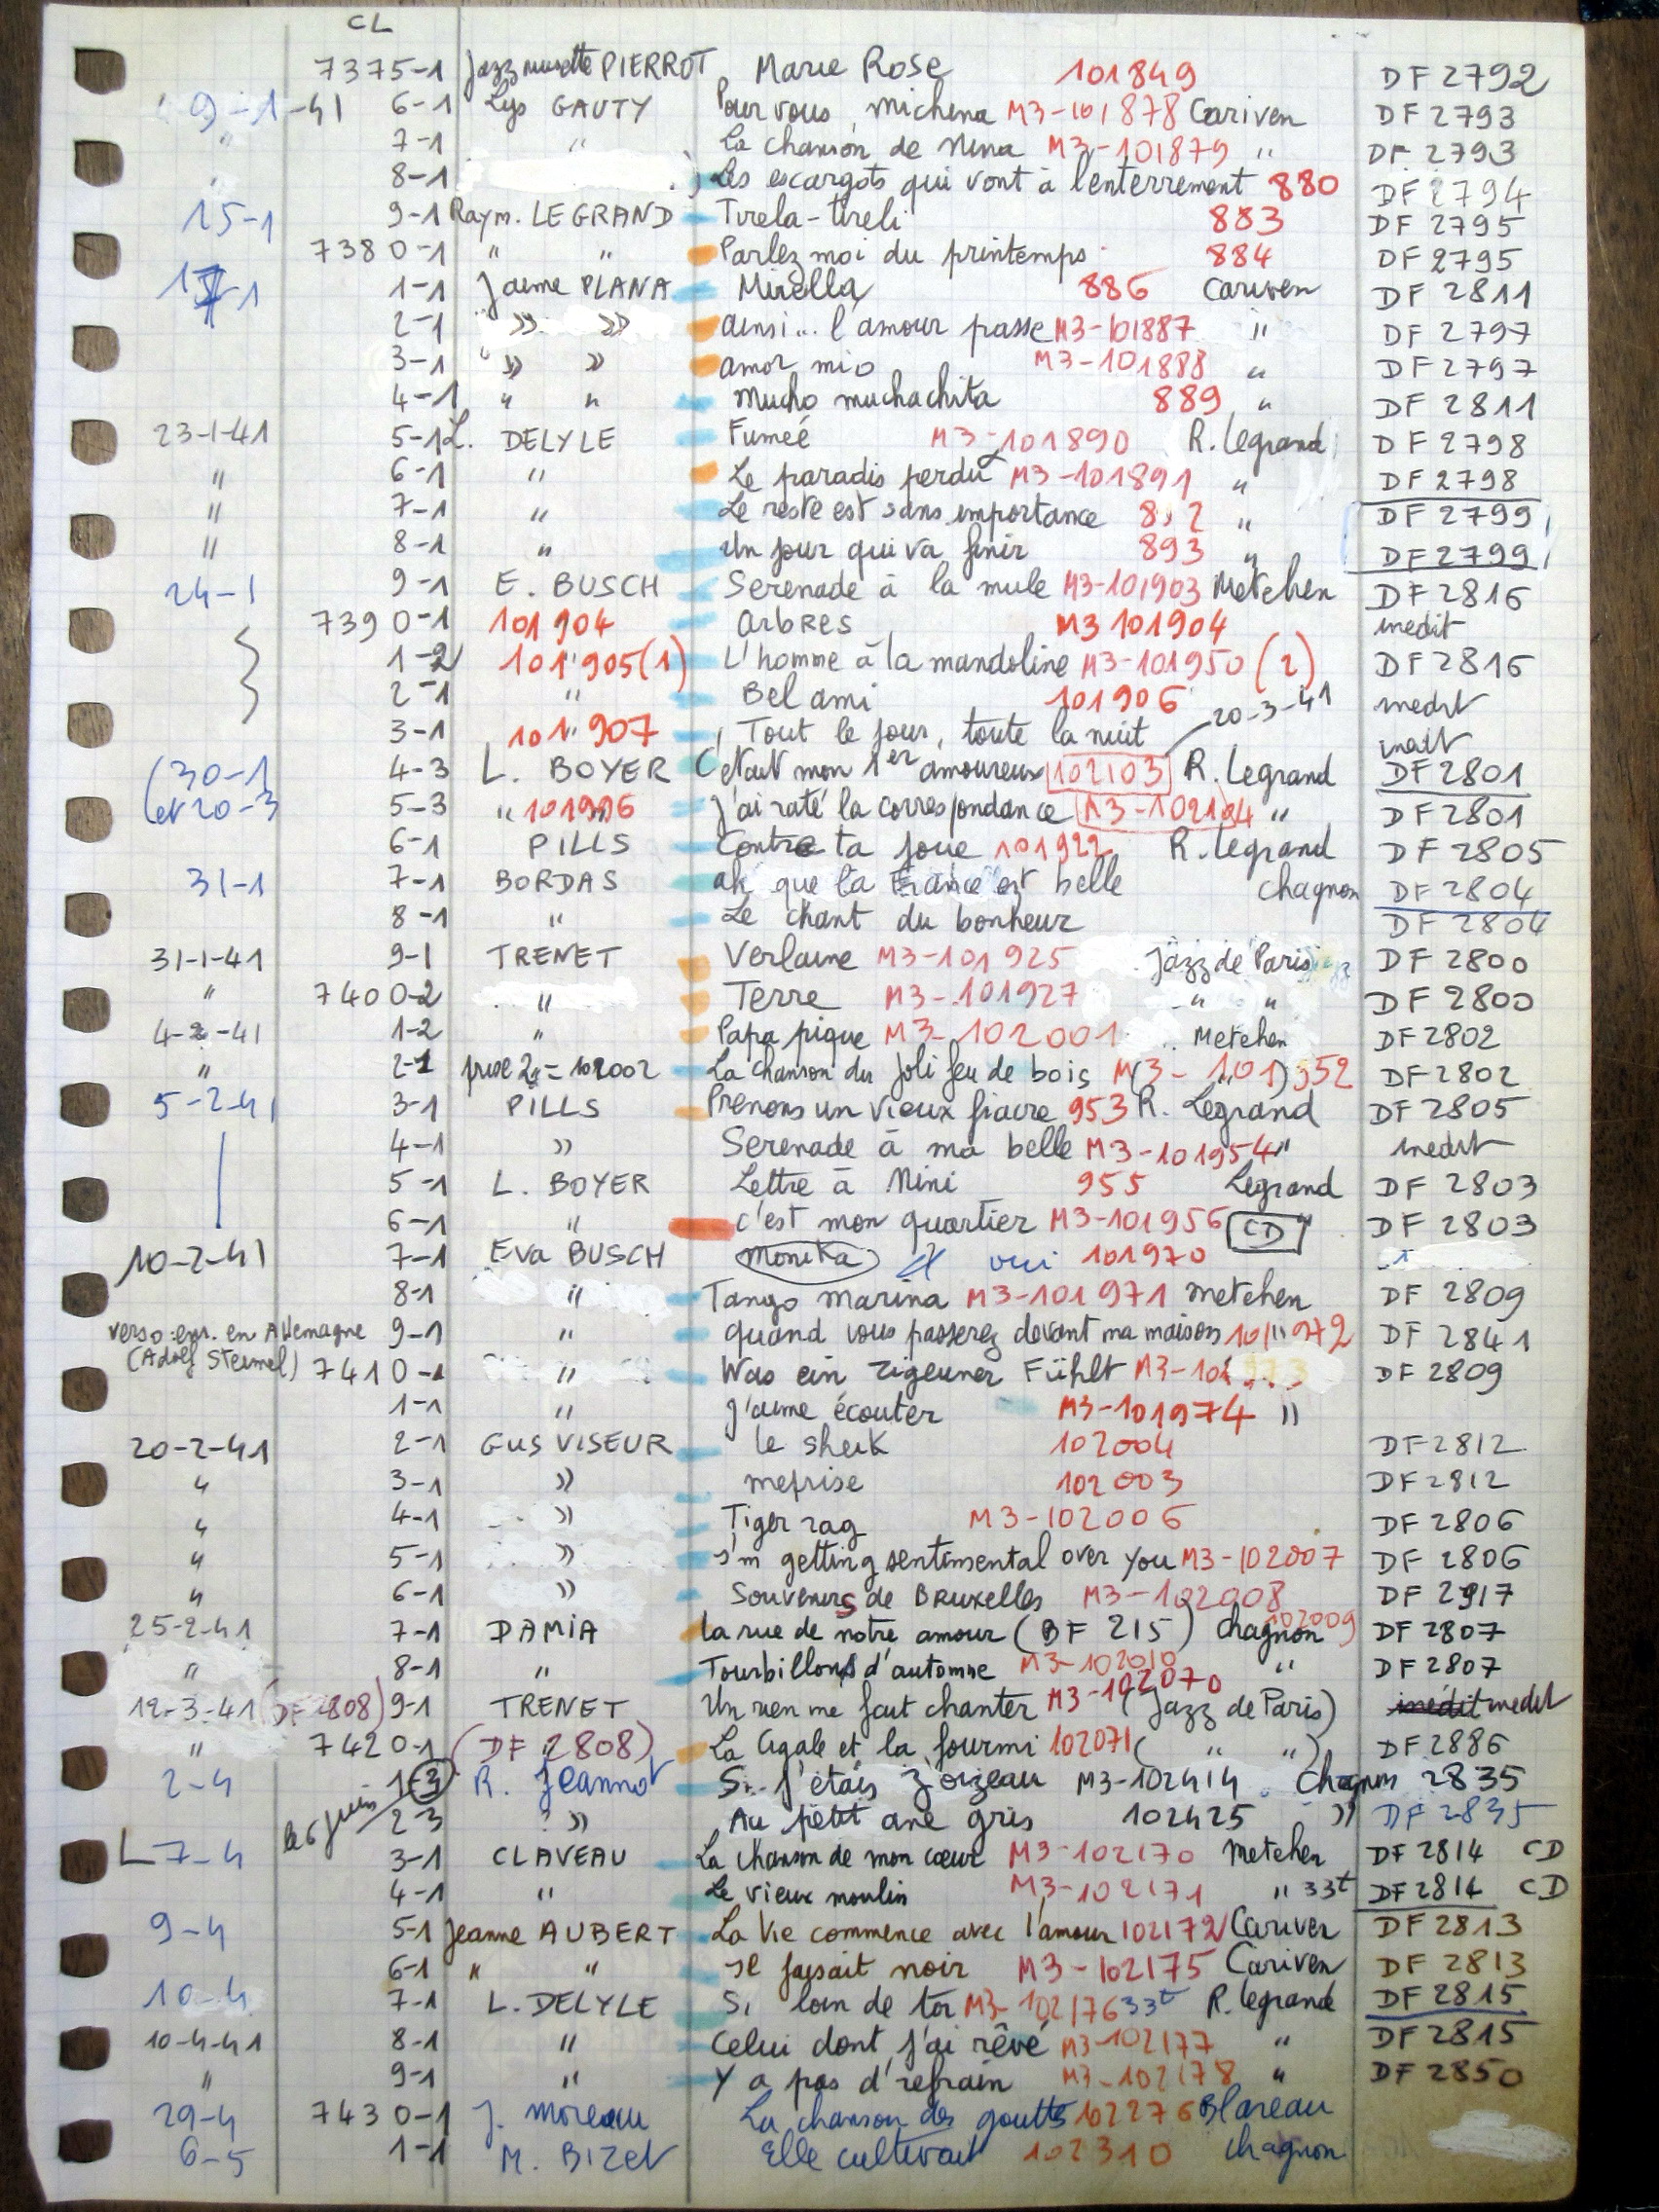 CL
7375-1 Jazz musette PIERROT Marie Rose 101849 DF 2792
9-1-41 6-1 Lys GAUTY Pour vous, michina M3-101878 Cariven DF 2793
" 7-1 " La chanson de Nina M3-101879 " DF 2793
" 8-1 Les escargots qui vont à l'enterrement 880 DF 2794
15-1 9-1 Raym. LEGRAND Tirela-tireli 883 DF 2795
7380-1 " " Parlez moi du printemps 884 DF 2795
1-1 Jaime PLANA Mirella 886 Cariven DF 2811
2-1 " " ainsi... l'amour passe M3-101887 " DF 2797
3-1 " " amor mio M3-101888 " DF 2797
4-1 " " Mucho muchachita 889 " DF 2811
23-1-41 5-1 L. DELYLE Fumeé M3-101890 R. Legrand DF 2798
" 6-1 " Le paradis perdu M3-101891 " DF 2798
" 7-1 " Le reste est sans importance 892 " DF 2799
" 8-1 " Un jour qui va finir 893 " DF 2799
24-1 9-1 E. BUSCH Serenade à la mule M3-101903 Metehen DF 2816
7390-1 101904 arbres M3 101904 inedit
1-2 101905(1) L'homme à la mandoline M3-101950 (2) DF 2816
2-1 " Bel ami 101906 inedit
3-1 101907 Tout le jour, toute la nuit 20-3-41 inedit
(30-1 4-3 L. BOYER C'etait mon 1er amoureux 102103 R. Legrand DF 2801
et 20-3 5-3 " 101996 J'ai raté la correspondance M3-102194 " DF 2801
6-1 PILLS Contre ta joue 101922 R. Legrand DF 2805
31-1 7-1 BORDAS ah que la France est belle chagnon DF 2804
8-1 " Le chant du bonheur DF 2804
31-1-41 9-1 TRENET Verlaine M3-101925 Jazz de Paris DF 2800
" 7400-2 " Terre M3-101927 " " DF 2800
4-2-41 1-2 " Papa pique M3-102001 Metehen DF 2802
" 2-1 prise 2 = 102002 La chanson du joli feu de bois M(3-101)952 DF 2802
5-2-41 3-1 PILLS Prenons un vieux fiacre 953 R. Legrand DF 2805
4-1 " Serenade à ma belle M3-101954 " inedit
5-1 L. BOYER Lettre à Nini 955 Legrand DF 2803
6-1 " c'est mon quartier M3-101956 CD " DF 2803
10-2-41 7-1 Eva BUSCH Monika oui 101970
8-1 " Tango marina M3-101971 metehen DF 2809
verso: enr. en Allemagne 9-1 " quand vous passerez devant ma maison 101972 DF 2841
(Adolf Steimel) 7410-1 " Was ein zigeuner Fühlt M3-101973 DF 2809
1-1 " J'aime écouter M3-101974 "
20-2-41 2-1 GUS VISEUR le sheik 102004 DF 2812
" 3-1 " meprise 102003 DF 2812
" 4-1 " Tiger rag M3-102006 DF 2806
" 5-1 " I'm getting sentimental over you M3-102007 DF 2806
" 6-1 " Souvenirs de BRUXELLES M3-102008 DF 2917
25-2-41 7-1 DAMIA la rue de notre amour (BF 215) chagnon 102009 DF 2807
" 8-1 " Tourbillons d'automne M3-102010 " DF 2807
12-3-41 (DF 2808) 9-1 TRENET Un rien me fait chanter M3-102070 (Jazz de Paris) inédit inedit
" 7420-1 (DF 2808) La Cigale et la fourmi 102071 ( " " ) DF 2886
2-4 1-3 R. Jeannot Si j'étais z'oizeau M3-102414 Chagnon 2835
le 6 juin 2-3 " Au petit ane gris 102425 " DF 2835
7-4 3-1 CLAVEAU La chanson de mon cœur M3-102170 Metehen DF 2814 CD
4-1 " Le vieux moulin M3-102171 " 33t DF 2814 CD
9-4 5-1 Jeanne AUBERT La vie commence avec l'amour 102172 Cariven DF 2813
6-1 " " Il faisait noir M3-102175 Cariven DF 2813
10-4 7-1 L. DELYLE Si loin de toi M3-102176 33t R. Legrand DF 2815
10-4-41 8-1 " Celui dont j'ai rêvé M3-102177 " DF 2815
" 9-1 " Y a pas d'refrain M3-102178 " DF 2850
29-4 7430-1 J. Moreau La chanson des gouttes 102276 Blareau
6-5 1-1 M. Bizet Elle cultivait 102310 chagnon